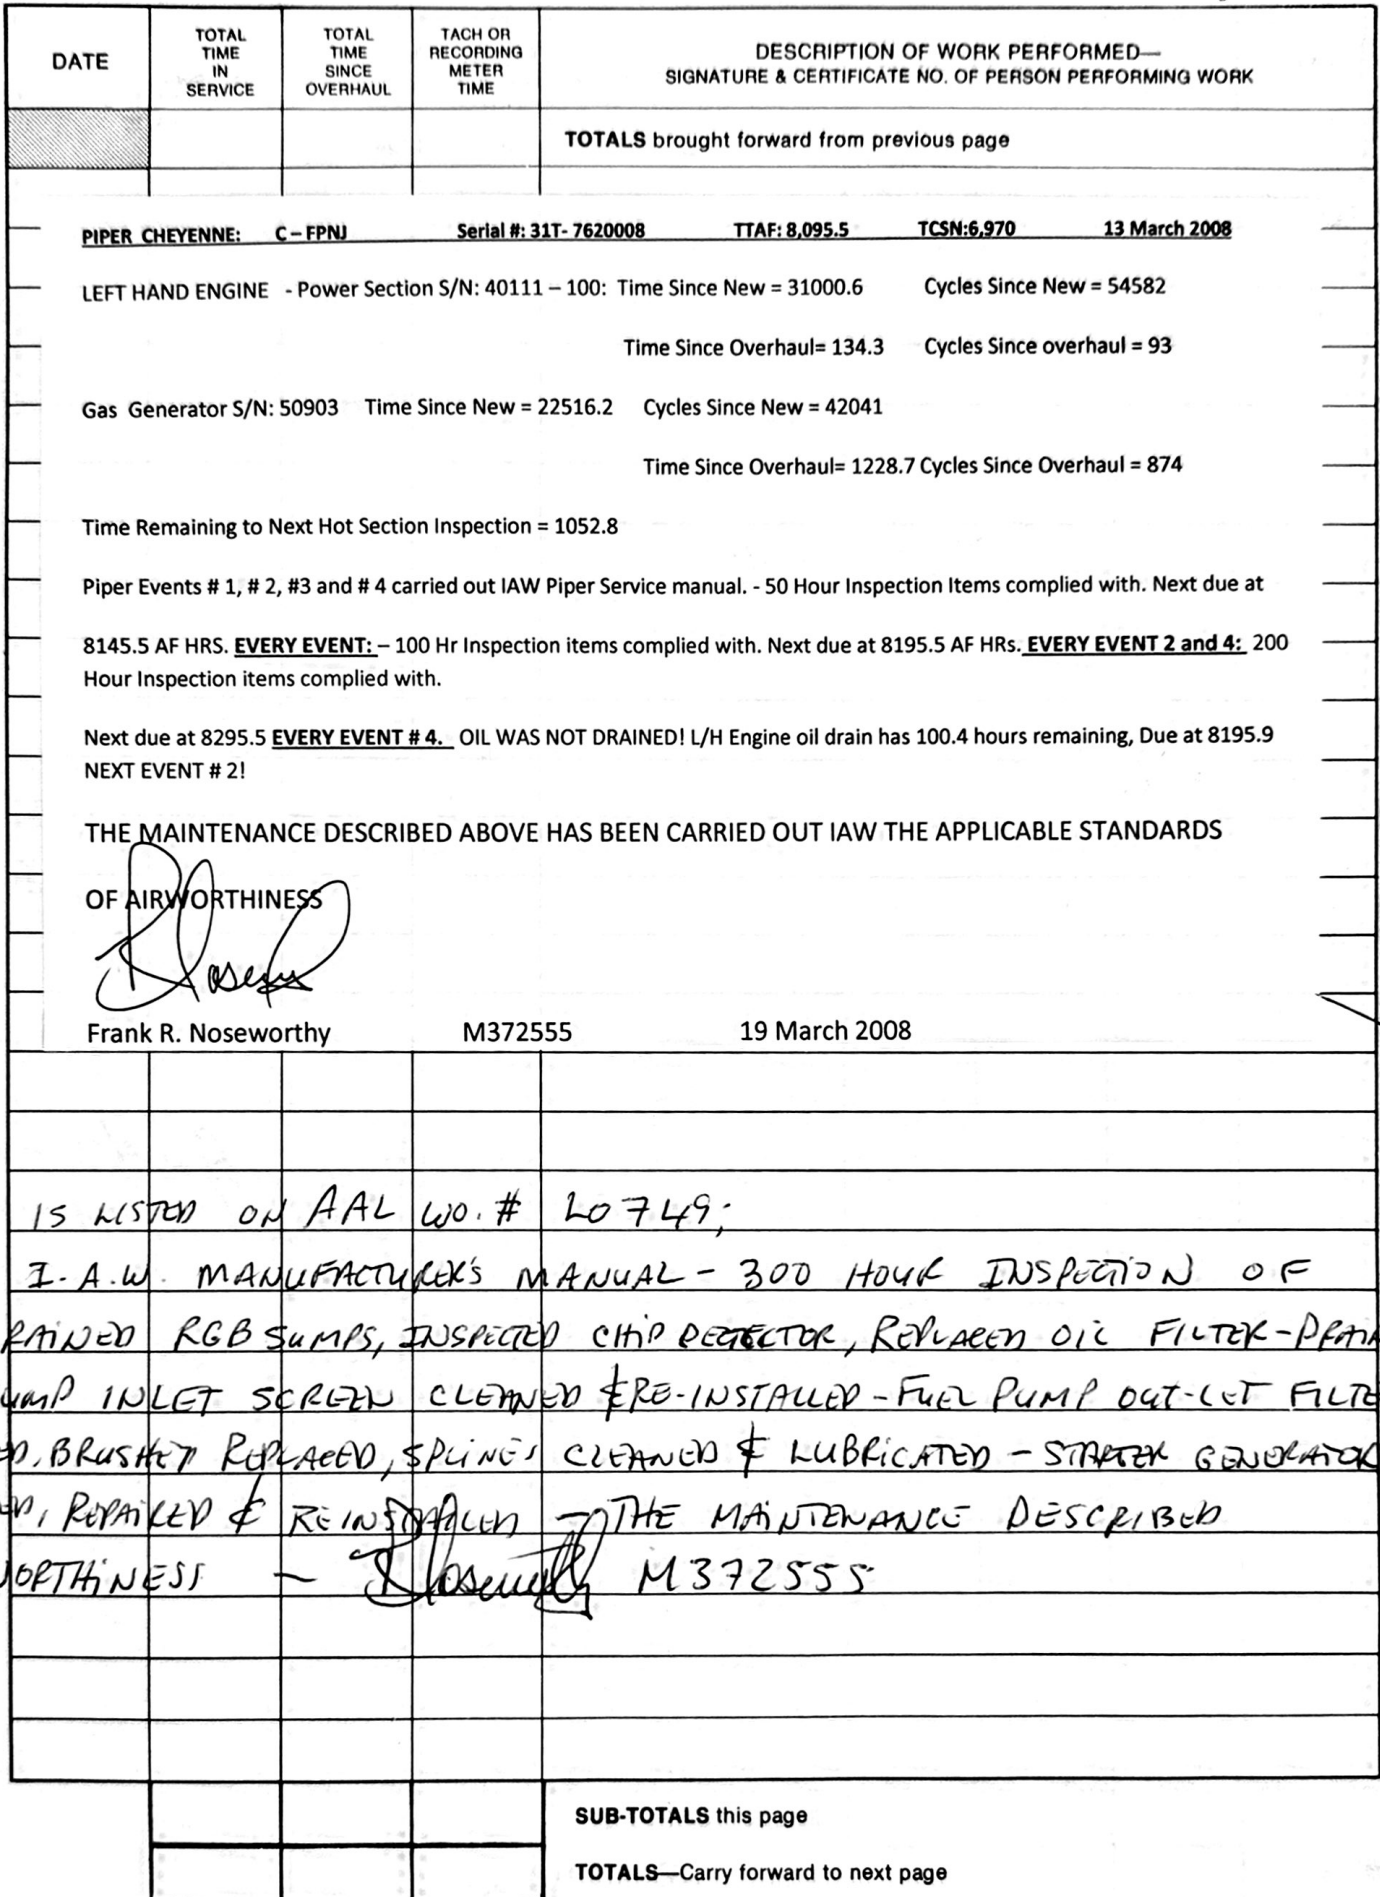 DATE
TOTAL TIME IN SERVICE
TOTAL TIME SINCE OVERHAUL
TACH OR RECORDING METER TIME
DESCRIPTION OF WORK PERFORMED—
SIGNATURE & CERTIFICATE NO. OF PERSON PERFORMING WORK
TOTALS brought forward from previous page
PIPER CHEYENNE: C – FPNJ Serial #: 31T- 7620008 TTAF: 8,095.5 TCSN:6,970 13 March 2008
LEFT HAND ENGINE - Power Section S/N: 40111 – 100: Time Since New = 31000.6 Cycles Since New = 54582
Time Since Overhaul= 134.3 Cycles Since overhaul = 93
Gas Generator S/N: 50903 Time Since New = 22516.2 Cycles Since New = 42041
Time Since Overhaul= 1228.7 Cycles Since Overhaul = 874
Time Remaining to Next Hot Section Inspection = 1052.8
Piper Events # 1, # 2, #3 and # 4 carried out IAW Piper Service manual. - 50 Hour Inspection Items complied with. Next due at
8145.5 AF HRS. EVERY EVENT: – 100 Hr Inspection items complied with. Next due at 8195.5 AF HRs. EVERY EVENT 2 and 4: 200
Hour Inspection items complied with.
Next due at 8295.5 EVERY EVENT # 4. OIL WAS NOT DRAINED! L/H Engine oil drain has 100.4 hours remaining, Due at 8195.9
NEXT EVENT # 2!
THE MAINTENANCE DESCRIBED ABOVE HAS BEEN CARRIED OUT IAW THE APPLICABLE STANDARDS
OF AIRWORTHINESS
Frank R. Noseworthy M372555 19 March 2008
IS LISTED ON AAL WO. # L0749;
I.A.W. MANUFACTURER'S MANUAL - 300 HOUR INSPECTION OF
RAINED RGB SUMPS, INSPECTED CHIP DETECTOR, REPLACED OIL FILTER - DRAIN
UMP INLET SCREEN CLEANED & RE-INSTALLED - FUEL PUMP OUT-LET FILTE
ED, BRUSHES REPLACED, SPLINES CLEANED & LUBRICATED - STARTER GENERATOR
ED, REPAIRED & REINSTALLED - THE MAINTENANCE DESCRIBED
WORTHINESS - M372555
SUB-TOTALS this page
TOTALS—Carry forward to next page